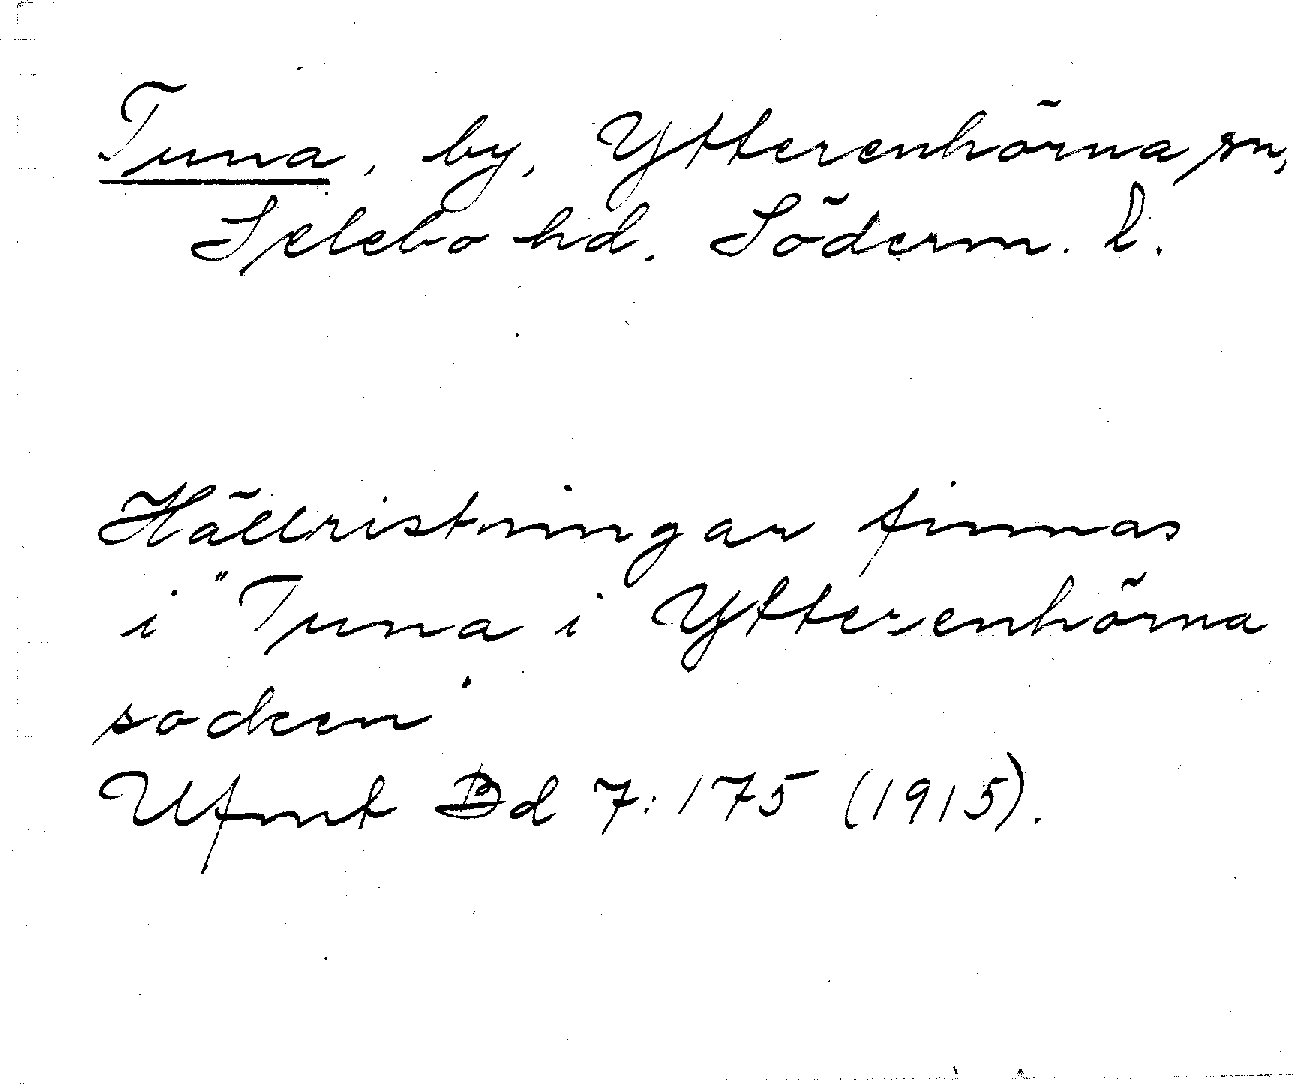 Tuna, by, Ytterenhörna sn,
Selebo hd. Söderm. l.
Hällristningar finnas
i "Tuna i Ytterenhörna
socken"
Ufmt Bd 7:175 (1915).